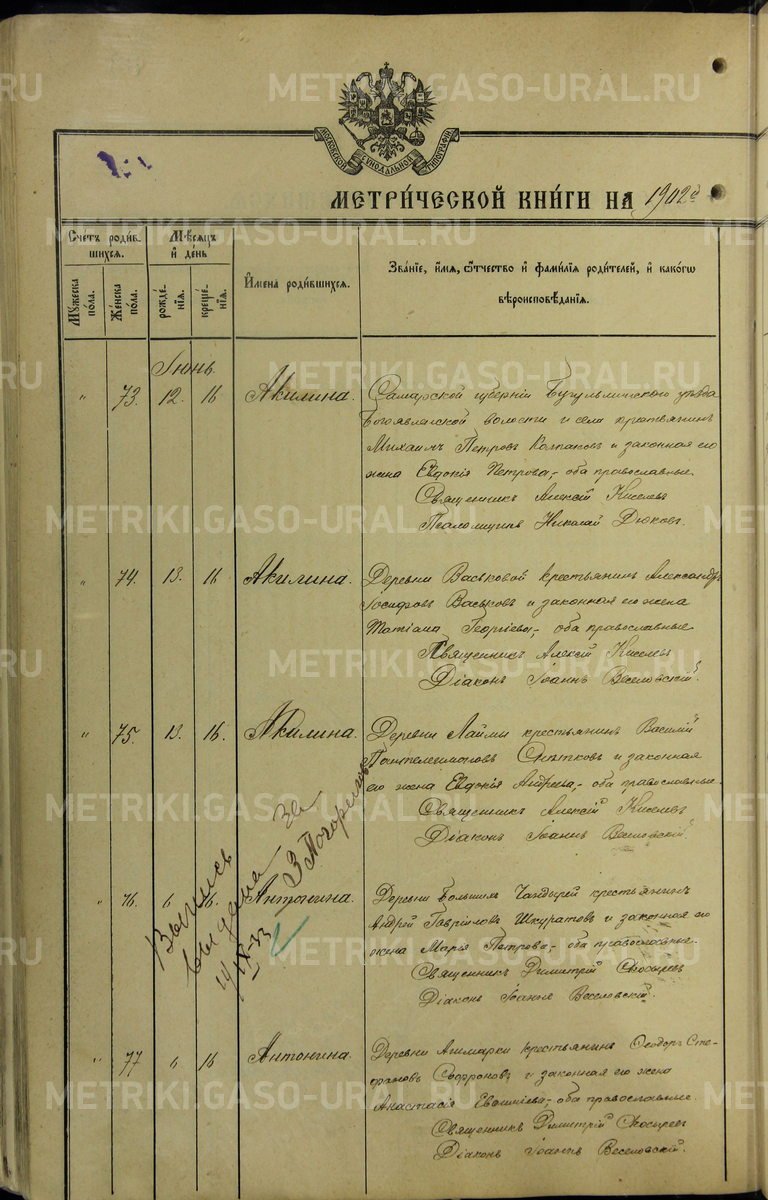 МОСКОВСКОЙ СѴНОДАЛЬНОЙ ТИПОГРАФІИ
МЕТРИЧЕСКОЙ КНИГИ НА 1902 й
Счетъ родившихся.
Мужеска пола.
Женска пола.
Мѣсяцъ и день
рожденія.
крещенія.
Имена родившихся.
Званіе, имя, отчество и фамилія родителей, и какого
вѣроисповѣданія.
Іюнь.
" 73. 12. 16 Акилина.
Самарской губерніи Бугульминскаго уѣзда
Богоявленской волости и села крестьянинъ
Михаилъ Петровъ Колпаковъ и законная его
жена Евдокія Петрова,- оба православные.
Священникъ Алексій Киселевъ
Псаломщикъ Николай Дюковъ.
" 74. 13. 16 Акилина.
Деревни Васьковой крестьянинъ Александръ
Іосифовъ Васьковъ и законная его жена
Татіана Георгіева,- оба православные
Священникъ Алексій Киселевъ
Діаконъ Іоаннъ Веселовскій.
" 75. 13. 16. Акилина.
Деревни Лаймы крестьянинъ Василій
Пантелеимоновъ и законная
его жена Евдокія Андреева,- оба православные.
Священникъ Алексій Киселевъ
Діаконъ Іоаннъ Веселовскій.
" 76. 6 16. Антонина.
Деревни Большихъ Чандырей крестьянинъ
Андрей Гавріиловъ Шкуратовъ и законная его
жена Марья Петрова,- оба православные.
Священникъ Димитрій Скосыревъ
Діаконъ Іоаннъ Веселовскій.
Выпись
выдана
IX-33
За
" 77 6 16 Антонина.
Деревни крестьянинъ Ѳеодоръ Сте-
фановъ Софроновъ и законная его жена
Анастасія Евѳиміева,- оба православные.
Священникъ Димитрій Скосыревъ
Діаконъ Іоаннъ Веселовскій.
METRIKI.GASO-URAL.RU